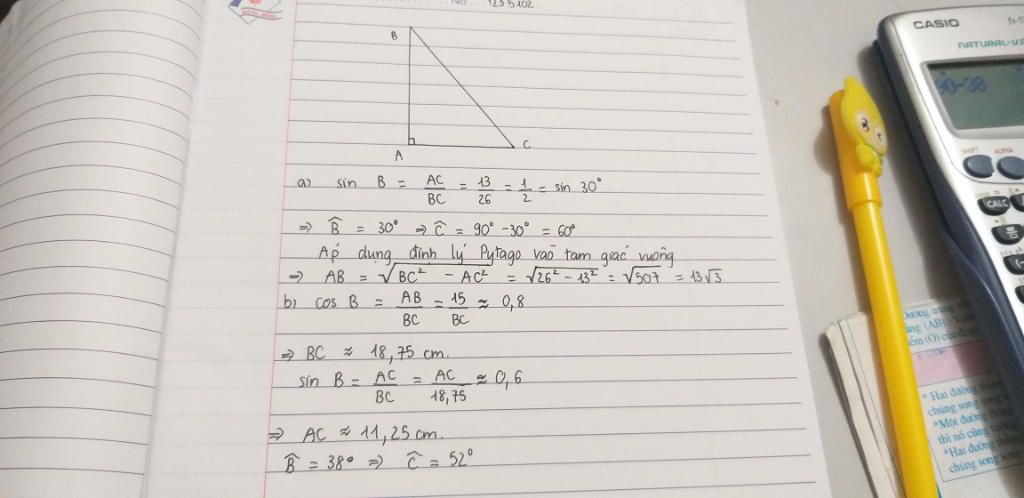 No...1235102.
B
A
C
a) sin B = AC/BC = 13/26 = 1/2 = sin 30°
⇒ B̂ = 30° ⇒ Ĉ = 90° - 30° = 60°
Áp dụng định lý Pytago vào tam giác vuông
⇒ AB = √(BC² - AC²) = √(26² - 13²) = √507 = 13√3
b) cos B = AB/BC = 15/BC ≈ 0,8
⇒ BC ≈ 18,75 cm.
sin B = AC/BC = AC/18,75 ≈ 0,6
⇒ AC ≈ 11,25 cm.
B̂ = 38° ⇒ Ĉ = 52°
CASIO
NATURAL-V.P.
90-38
SHIFT
ALPHA
CALC
(AB)
(O)
* Hai đường
chúng song
*Một đường
thì nó cũng
*Hai đường
chúng song song